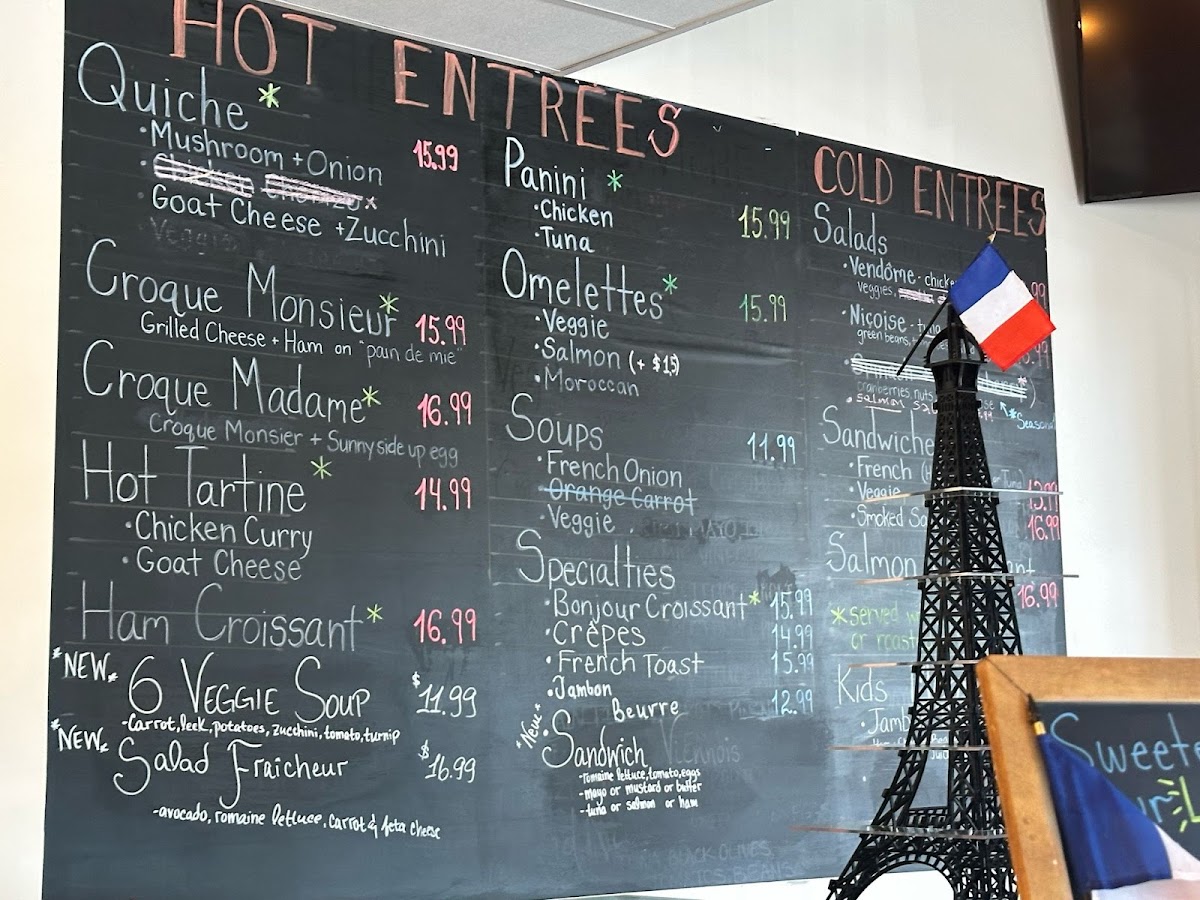 HOT ENTRÉES
Quiche *
·Mushroom + Onion 15.99
·Chicken Chorizo x
·Goat Cheese + Zucchini
Veggie
Croque Monsieur * 15.99
Grilled Cheese + Ham on "pain de mie"
Croque Madame * 16.99
Croque Monsier + Sunny side up egg
Hot Tartine * 14.99
·Chicken Curry
·Goat Cheese
Ham Croissant * 16.99
*NEW* 6 VEGGIE SOUP $11.99
-Carrot, leek, potatoes, zucchini, tomato, turnip
*NEW* Salad Fraicheur $16.99
-avocado, romaine lettuce, carrot & feta cheese
Panini *
·Chicken 15.99
·Tuna
Omelettes * 15.99
·Veggie
·Salmon (+ $1.5)
·Moroccan
Soups 11.99
·French Onion
·Orange Carrot
·Veggie
Specialties
·Bonjour Croissant * 15.99
·Crêpes 14.99
·French Toast 15.99
·Jambon
Beurre 12.99
*New* Sandwich Viennois
-romaine lettuce, tomato, eggs
-mayo or mustard or butter
-tuna or salmon or ham
COLD ENTRÉES
Salads
·Vendôme - chicke
veggies,
·Niçoise - tuna
green beans,
cranberries, nuts
·salmon
*Seasonal
Sandwiche
·French
·Veggie 13.99
·Smoked Sa 16.99
Salmon
16.99
*served w
or roast
Kids
·Jamb
Sweete